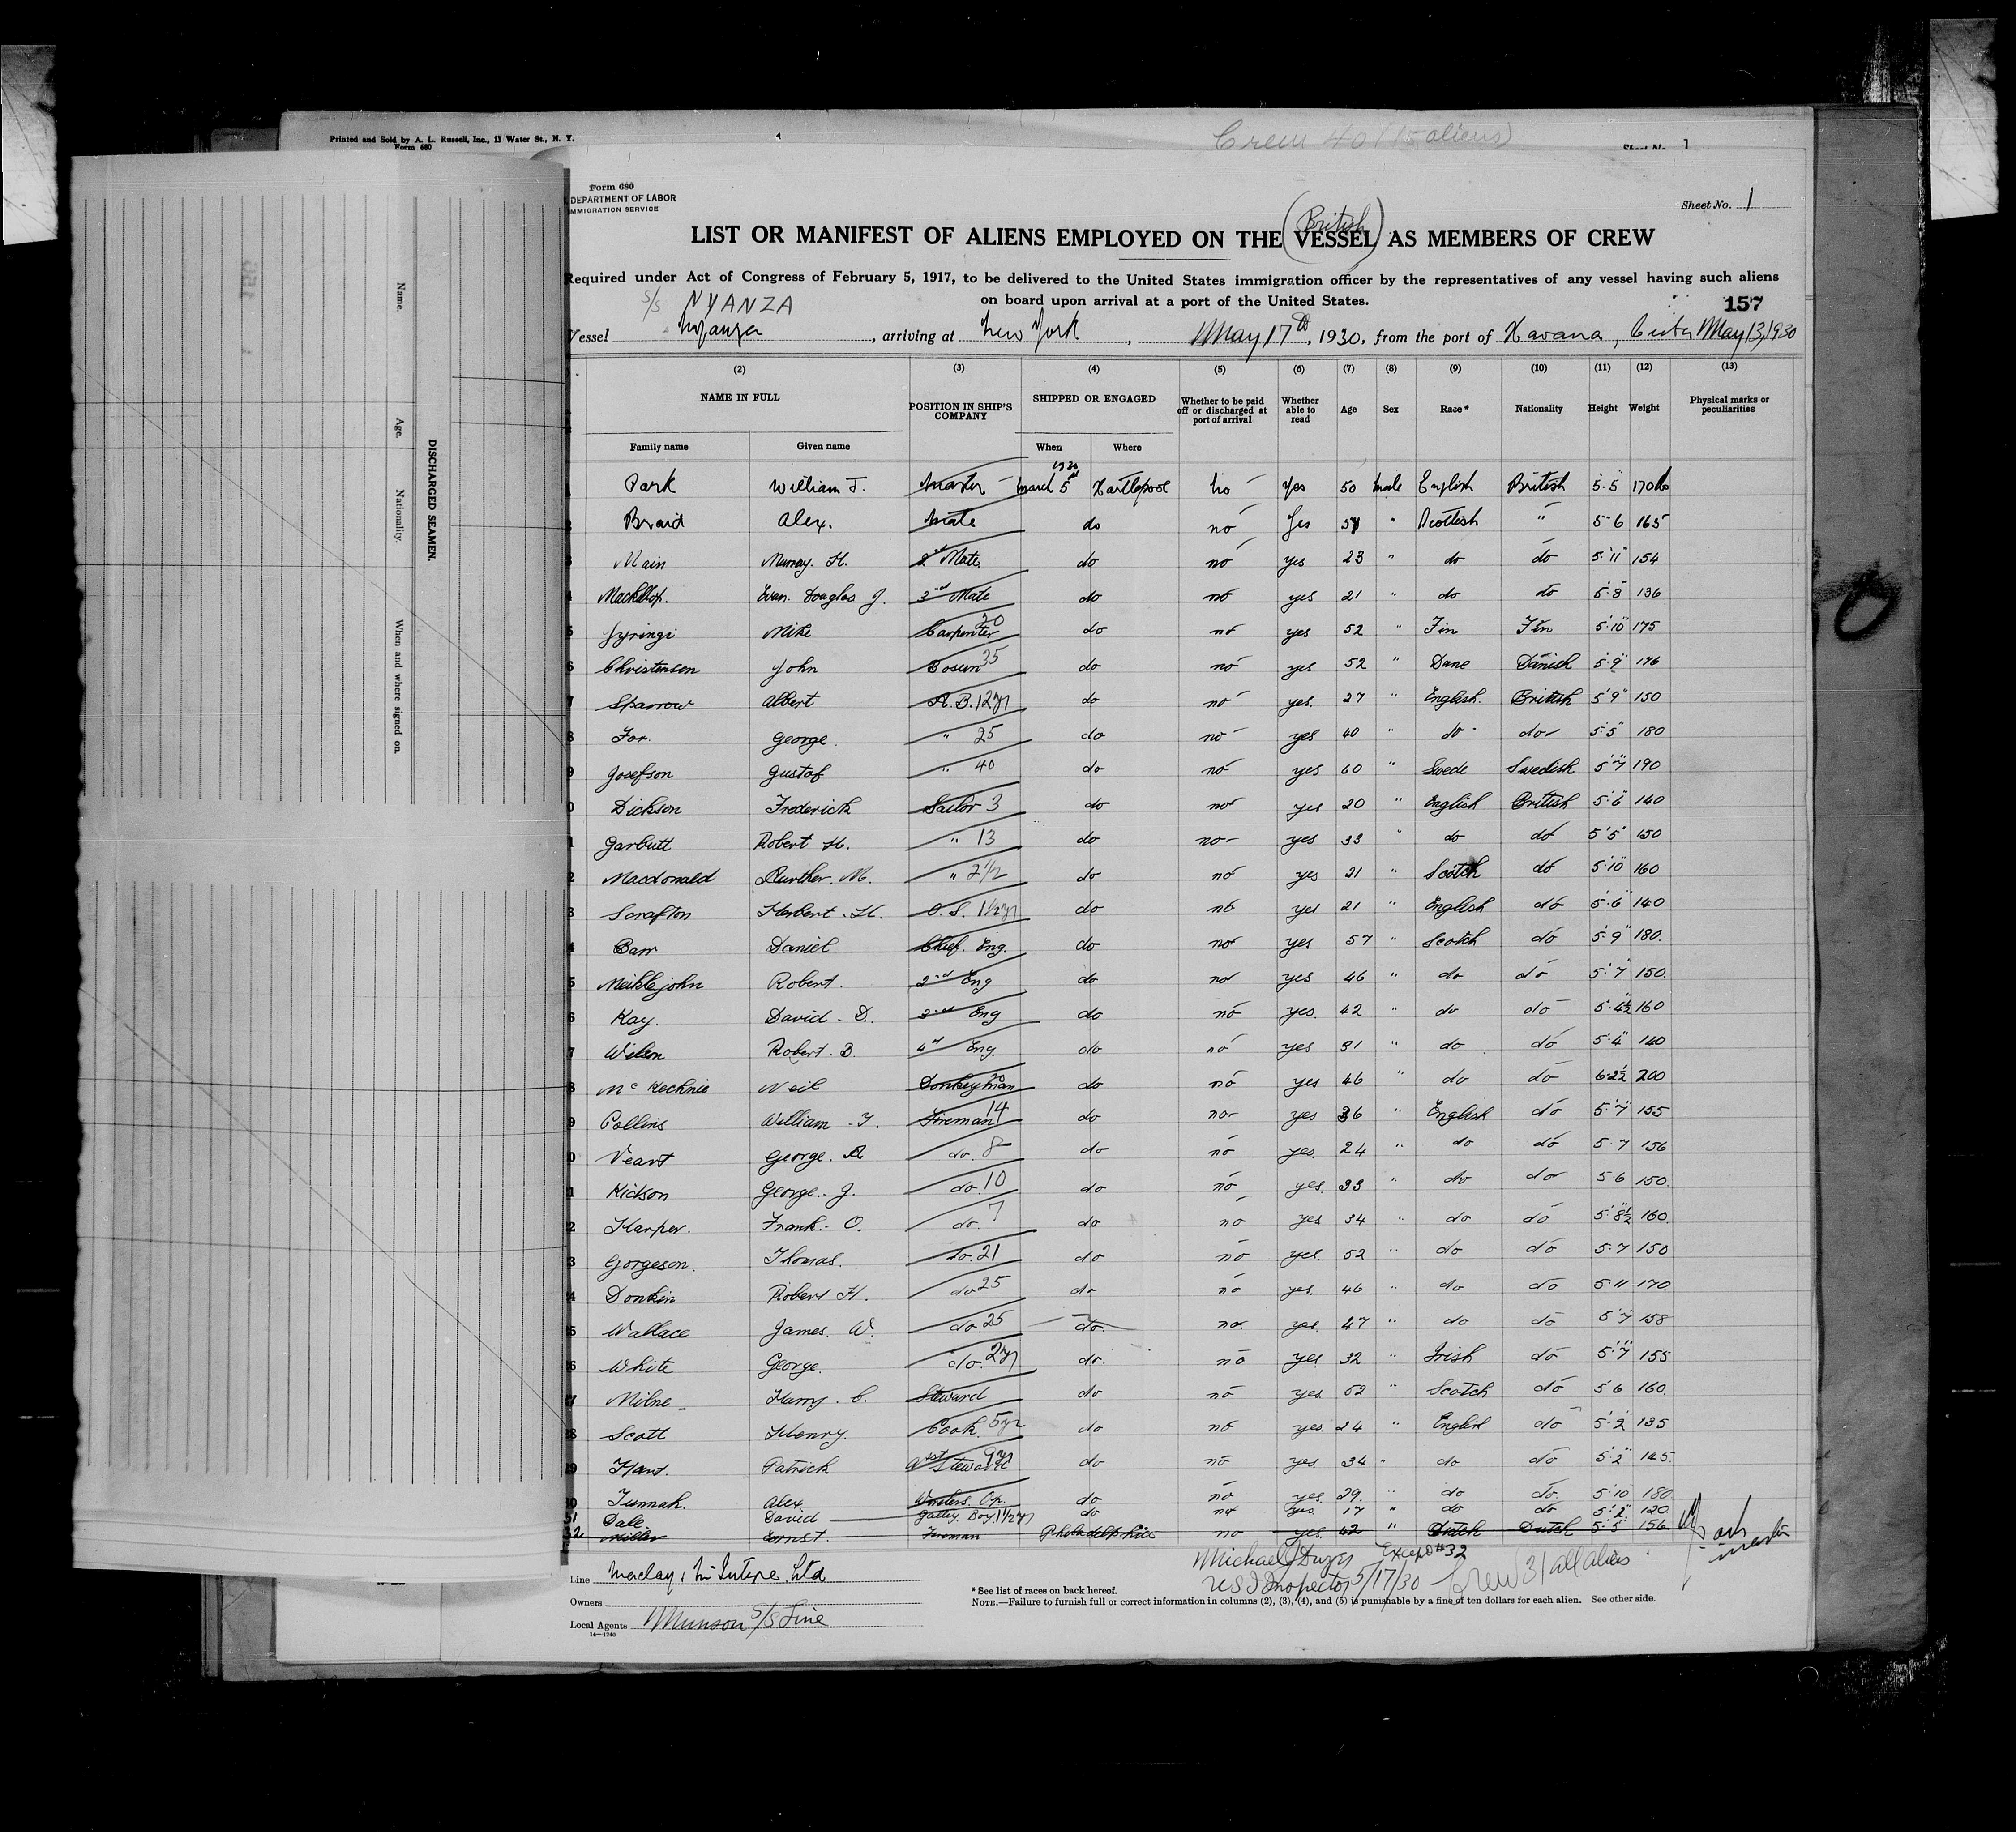 Printed and Sold by A. L. Russell, Inc., 13 Water St., N. Y.
Form 680
Crew 40 (15 aliens)
Sheet No. 1
Form 680
DEPARTMENT OF LABOR
MMIGRATION SERVICE
Sheet No. 1
(British)
LIST OR MANIFEST OF ALIENS EMPLOYED ON THE VESSEL AS MEMBERS OF CREW
Required under Act of Congress of February 5, 1917, to be delivered to the United States immigration officer by the representatives of any vessel having such aliens
on board upon arrival at a port of the United States.
157
S/S NYANZA
Vessel Nyanza, arriving at New York, May 17th, 1930, from the port of Havana, Cuba May 13, 1930
(2) (3) (4) (5) (6) (7) (8) (9) (10) (11) (12) (13)
NAME IN FULL
Family name Given name
POSITION IN SHIP'S COMPANY
SHIPPED OR ENGAGED
When Where
Whether to be paid off or discharged at port of arrival
Whether able to read
Age Sex Race* Nationality Height Weight
Physical marks or peculiarities
1930
Park William J. Master March 5th Hartlepool no Yes 50 male English British 5·5 170 lb
Braid Alex. Mate do no Yes " Scottish " 5·6 165
3 Main Murray. H. 2nd Mate do no yes 23 " do do 5'11" 154
4 Evan Douglas J. 3rd Mate do no yes 21 " do do 5'8 136
5 Mike Carpenter 20 do no yes 52 " Fin Fin 5'10" 175
6 Christensen John Bosun 35 do no yes 52 " Dane Danish 5'9" 176
7 Sparrow Albert A.B. 12 yr do no yes. 27 " English. British 5'9" 150
8 Fox. George " 25 do no yes 40 " do do 5'5" 180
9 Josefson Gustof " 40 do no yes 60 " Swede Swedish 5'7" 190
0 Dickson Frederick Sailor 3 do no yes 20 " English British 5'6" 140
1 Garbutt Robert H. " 13 do no yes 33 " do do 5'5" 150
2 Macdonald M. " 2 1/2 do no yes 21 " Scotch do 5'10" 160
3 Scrafton Herbert. H. O. S. 1 1/2 yr do no yes 21 " English do 5'6" 140
4 Barr Daniel Chief. Eng. do no yes 57 " Scotch do 5'9" 180.
5 Meiklejohn Robert. 2nd Eng do no yes 46 " do do 5'7" 150
6 Kay. David. D. 3rd Eng do no yes. 42 " do do 5'4½ 160
7 Wilson Robert. B. 4th Eng. do no yes 31 " do do 5'4" 140
8 McKechnie Neil Donkeyman 20 do no yes 46 " do do 6·2½ 200
9 Collins William. Fireman 14 do no yes 36 " English do 5'7" 155
0 Veart George. A do. 8 do no yes. 24 " do do 5·7 156
1 Hickson George. J. do. 10 do no yes. 33 " do do 5·6 150.
2 Harper. Frank. O. do. 7 do no yes 34 " do do 5'8½ 160.
3 Gorgeson. Thomas. do. 21 do no yes. 52 " do do 5·7 150
4 Donkin Robert H. do 25 do no yes. 46 " do do 5·11 170.
5 Wallace James. W. do. 25 do. no. yes. 47 " do do 5'7 158
6 White George. do. 2 yr do. no yes 32 " Irish do 5'7" 155
7 Milne Harry. C. Steward do no yes. 52 " Scotch do 5'6 160.
8 Scott Henry. Cook. 5 yr do no yes. 24 " English do 5'2" 135
29 Hart. Patrick Asst Steward 9 yr do no yes. 34 " do do 5'2" 125.
30 Alex. Wireless. Op. do no yes. 29. " do do. 5'10 180.
31 Dale. David Galley Boy 1 1/2 yr do no yes. 17 " do do 5'2" 120
32 Miller Ernst. Fireman Philadelphia no yes. 42 " Dutch Dutch 5'5" 156
Park
master
Line Maclay & McIntyre Ltd
Owners
Local Agents Munson S/S Line
14—1240
Except #32
U S I Inspector 5/17/30
Crew 31 all aliens
* See list of races on back hereof.
NOTE.—Failure to furnish full or correct information in columns (2), (3), (4), and (5) is punishable by a fine of ten dollars for each alien. See other side.
DISCHARGED SEAMEN.
Name.
Age.
Nationality.
When and where signed on.